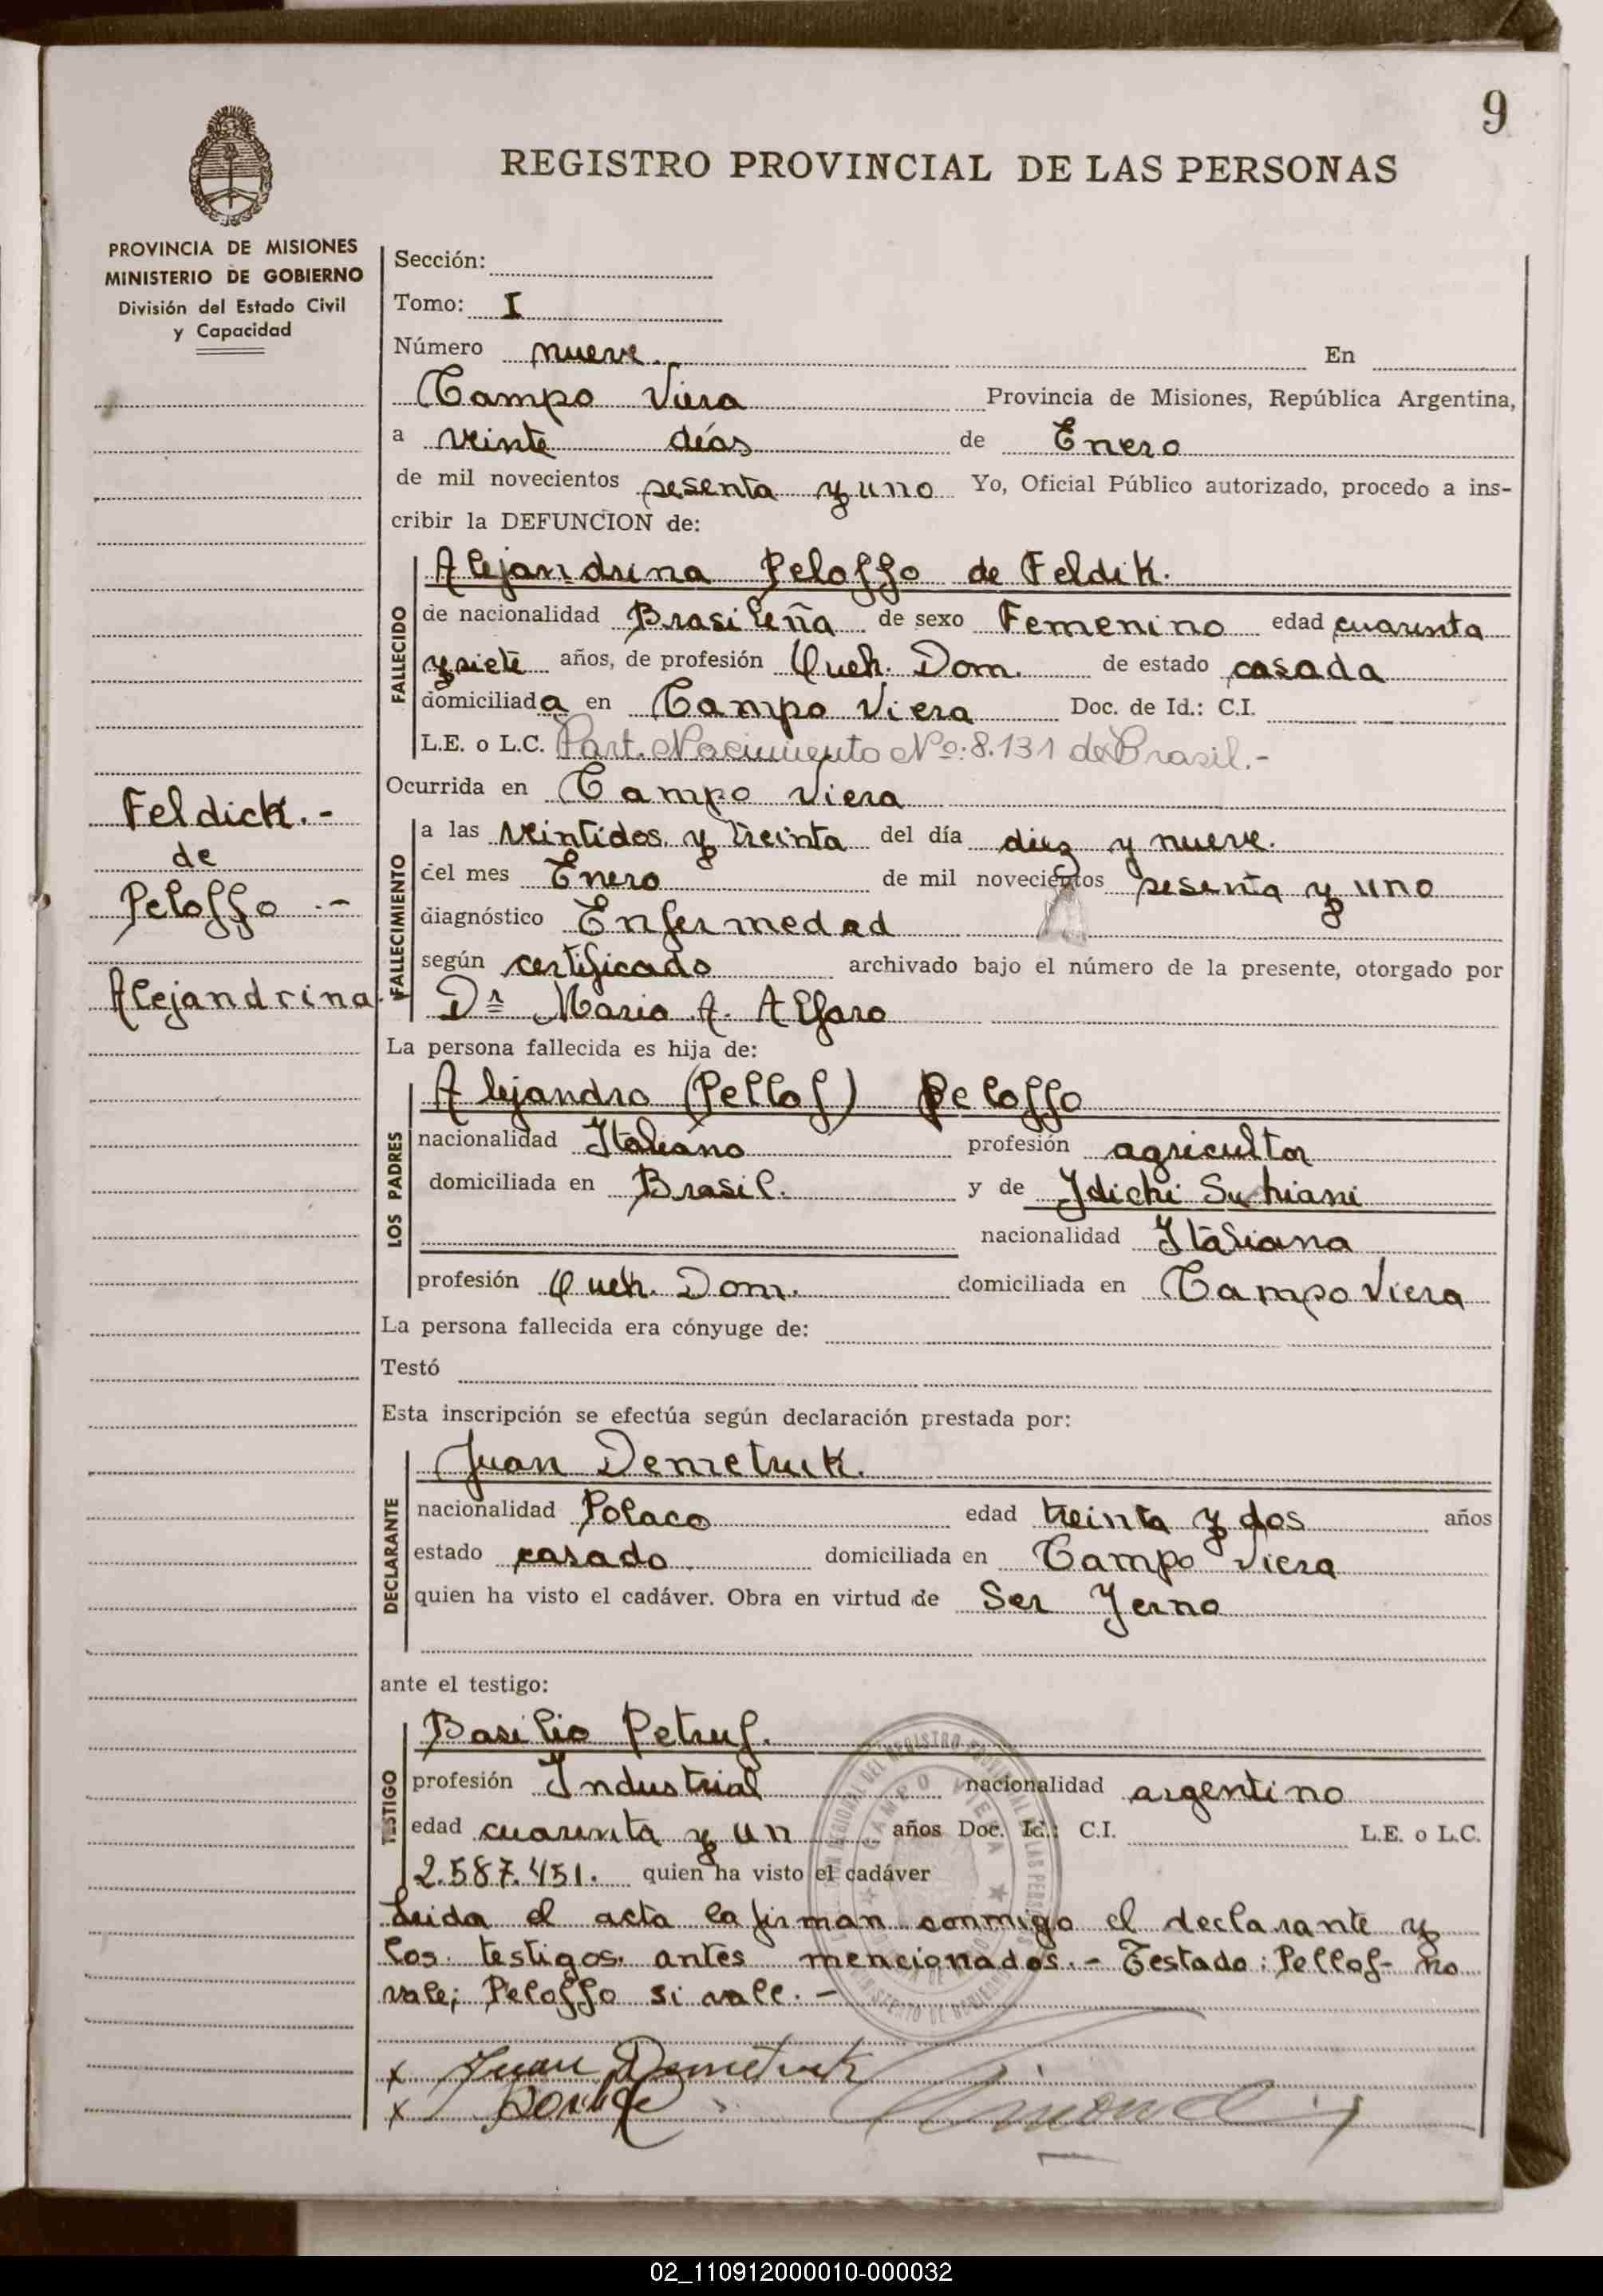 9
REGISTRO PROVINCIAL DE LAS PERSONAS
PROVINCIA DE MISIONES
MINISTERIO DE GOBIERNO
División del Estado Civil
y Capacidad
Feldick.-
de
Peloffo.-
Alejandrina.-
Sección:
Tomo: I
Número nueve. En
Campo Viera Provincia de Misiones, República Argentina,
a veinte días de Enero
de mil novecientos sesenta y uno Yo, Oficial Público autorizado, procedo a ins-
cribir la DEFUNCION de:
FALLECIDO
Alejandrina Peloffo de Feldik.
de nacionalidad Brasileña de sexo Femenino edad cuarenta
y siete años, de profesión Queh. Dom. de estado casada
domiciliada en Campo Viera Doc. de Id.: C.I.
L.E. o L.C. Part. Nacimiento Nº: 8.131 de Brasil.-
Ocurrida en Campo Viera
FALLECIMIENTO
a las veintidos y treinta del día diez y nueve.
del mes Enero de mil novecientos sesenta y uno
diagnóstico Enfermedad
según certificado archivado bajo el número de la presente, otorgado por
Dr Mario A. Alfaro
La persona fallecida es hija de:
LOS PADRES
Alejandro (Pellof) Peloffo
nacionalidad Italiano profesión agricultor
domiciliada en Brasil. y de Idichi
nacionalidad Italiana
profesión Queh. Dom. domiciliada en Campo Viera
La persona fallecida era cónyuge de:
Testó
Esta inscripción se efectúa según declaración prestada por:
DECLARANTE
Juan Demetruk.
nacionalidad Polaco edad treinta y dos años
estado casado domiciliada en Campo Viera
quien ha visto el cadáver. Obra en virtud de Ser Yerno
ante el testigo:
TESTIGO
Basilio Petruf.
profesión Industrial nacionalidad argentino
edad cuarenta y un años Doc. Id.: C.I. L.E. o L.C.
2.587.451. quien ha visto el cadáver
Leida el acta la firman conmigo el declarante y
los testigos antes mencionados.- Testado: Pellof- no
vale; Peloffo si vale.-
x Juan Demetruk
x
CAMPO VIERA
02_110912000010-000032